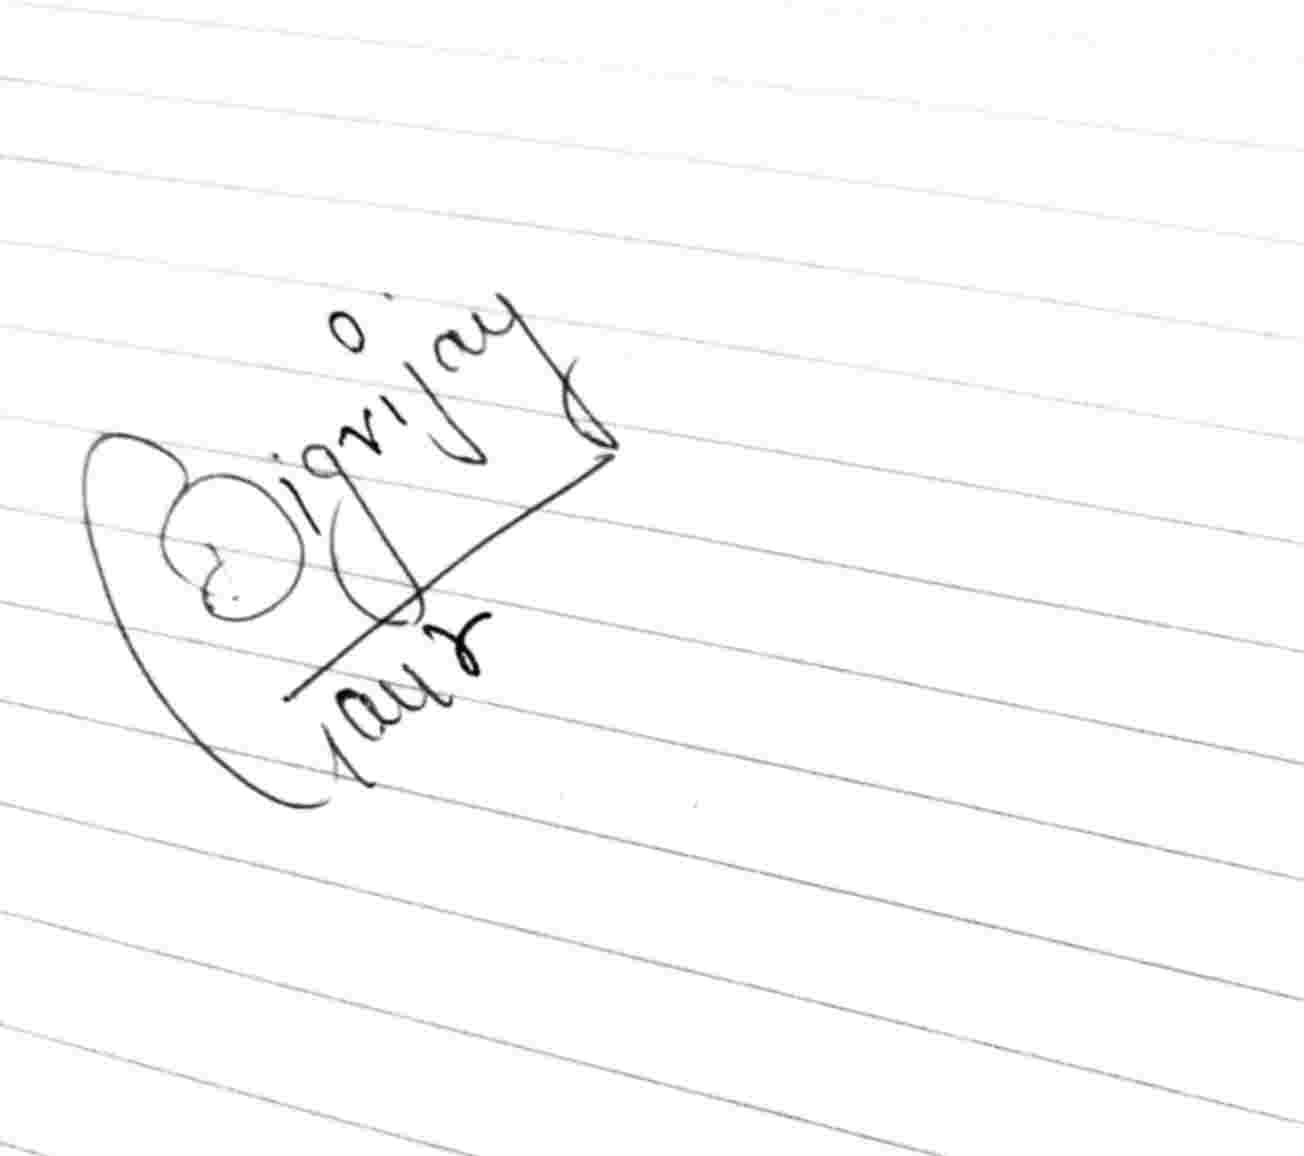 Digvijay
Gaur